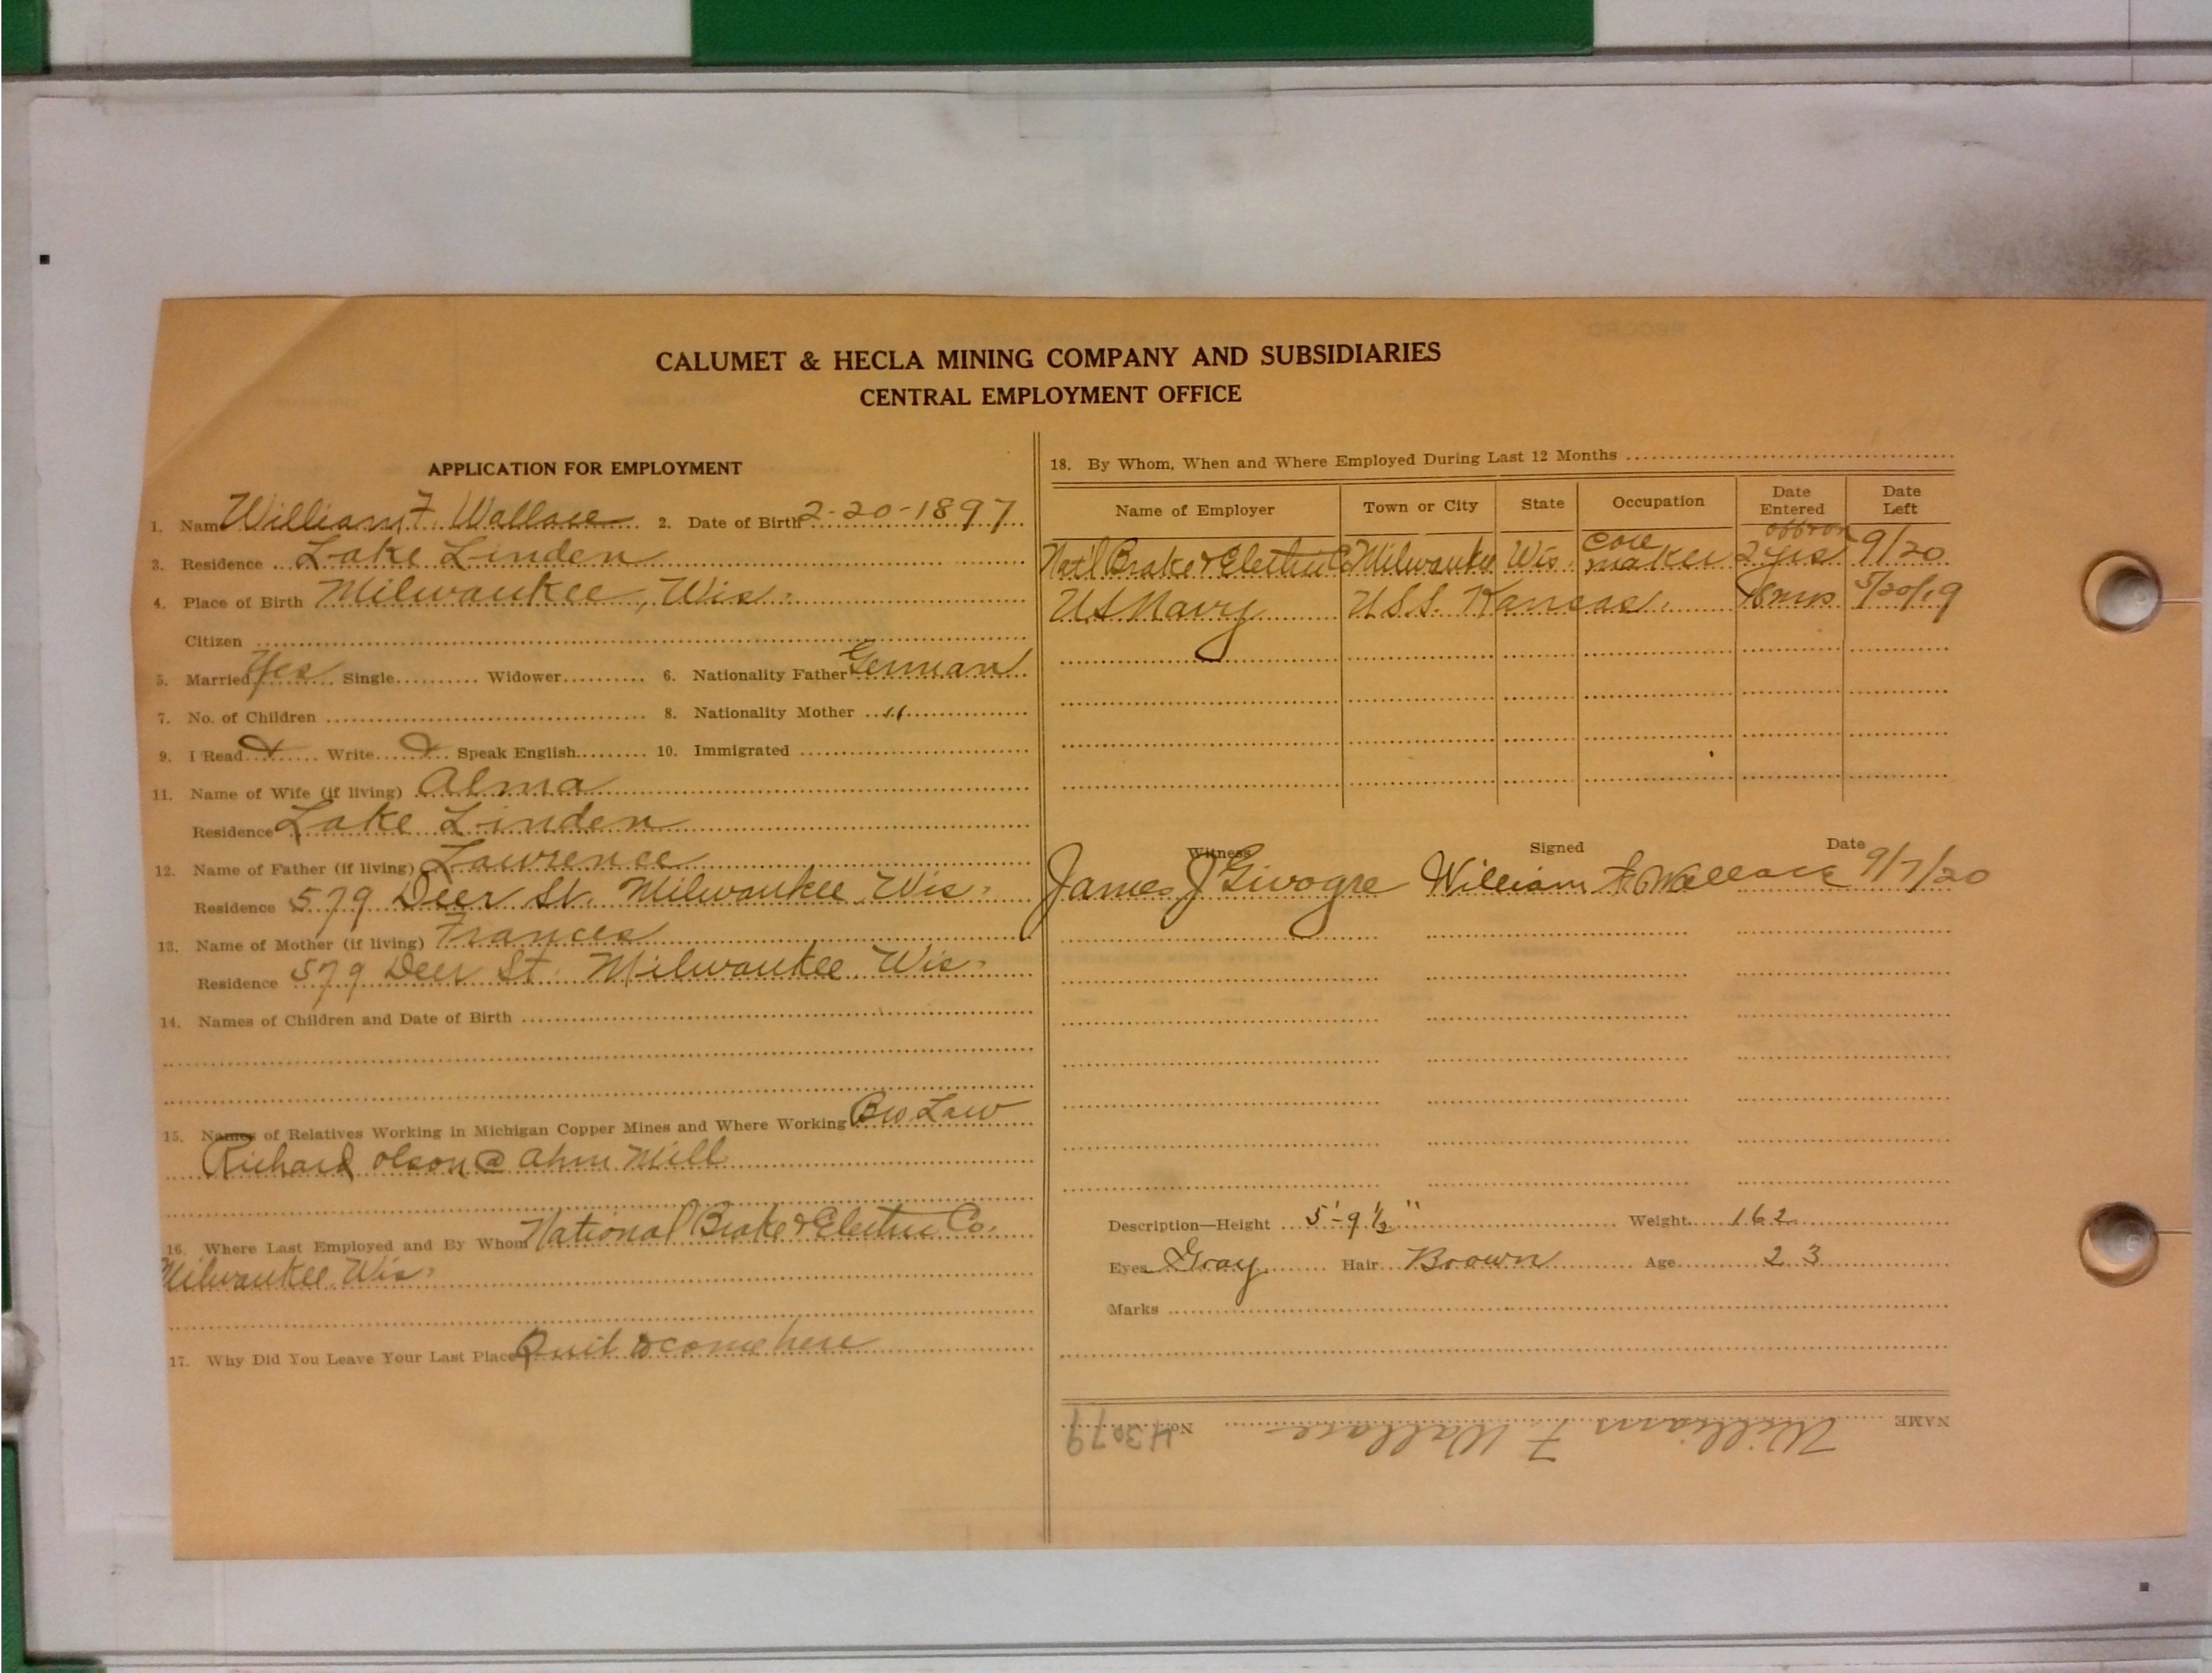 CALUMET & HECLA MINING COMPANY AND SUBSIDIARIES
CENTRAL EMPLOYMENT OFFICE
APPLICATION FOR EMPLOYMENT
1. Name William F. Wallace 2. Date of Birth 2-20-1897
3. Residence Lake Linden
4. Place of Birth Milwaukee, Wis.
Citizen
5. Married Yes Single Widower 6. Nationality Father German
7. No. of Children 8. Nationality Mother "
9. I Read Write Speak English 10. Immigrated
11. Name of Wife (if living) Alma
Residence Lake Linden
12. Name of Father (if living) Lawrence
Residence 579 Deer St. Milwaukee Wis.
13. Name of Mother (if living) Frances
Residence 579 Deer St. Milwaukee Wis.
14. Names of Children and Date of Birth
15. Names of Relatives Working in Michigan Copper Mines and Where Working Bro Law
Richard Olson @ Ahm Mill
16. Where Last Employed and By Whom National Brake & Electric Co.
Milwaukee Wis.
17. Why Did You Leave Your Last Place Quit & come here
18. By Whom, When and Where Employed During Last 12 Months
Name of Employer Town or City State Occupation Date Entered Date Left
Nat'l Brake & Electric Co Milwaukee Wis. Core maker off & on 2 yrs 9/20
US Navy U.S.S. Kansas. 5/20/19
Witness Signed Date
James J William F. Wallace 9/7/20
Description—Height 5'-9 1/2" Weight 162
Eyes Gray Hair Brown Age 23
Marks
NAME William F. Wallace No. 43079